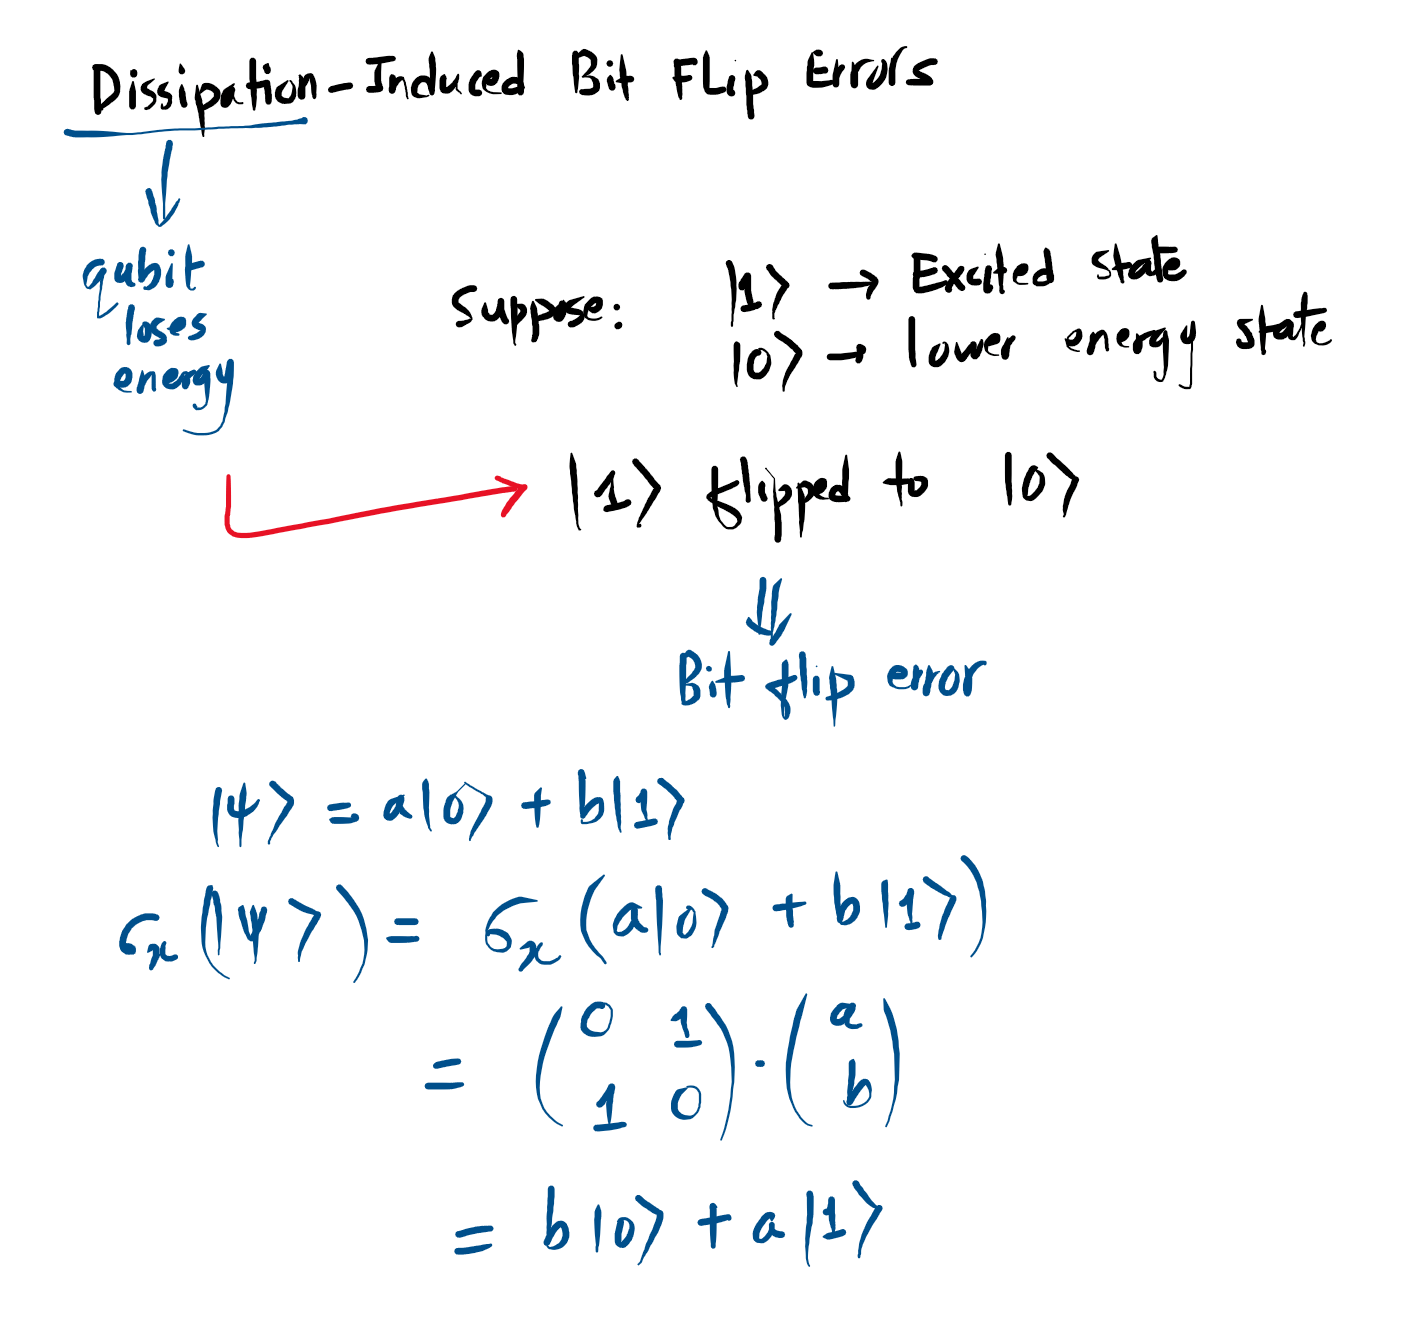 Dissipation-Induced Bit Flip Errors
qubit
loses
energy
Suppose:
|1⟩ → Excited state
|0⟩ → lower energy state
|1⟩ flipped to |0⟩
⇓
Bit flip error
|ψ⟩ = a|0⟩ + b|1⟩
σx (|ψ⟩) = σx (a|0⟩ + b|1⟩)
= (0 1; 1 0) · (a; b)
= b|0⟩ + a|1⟩